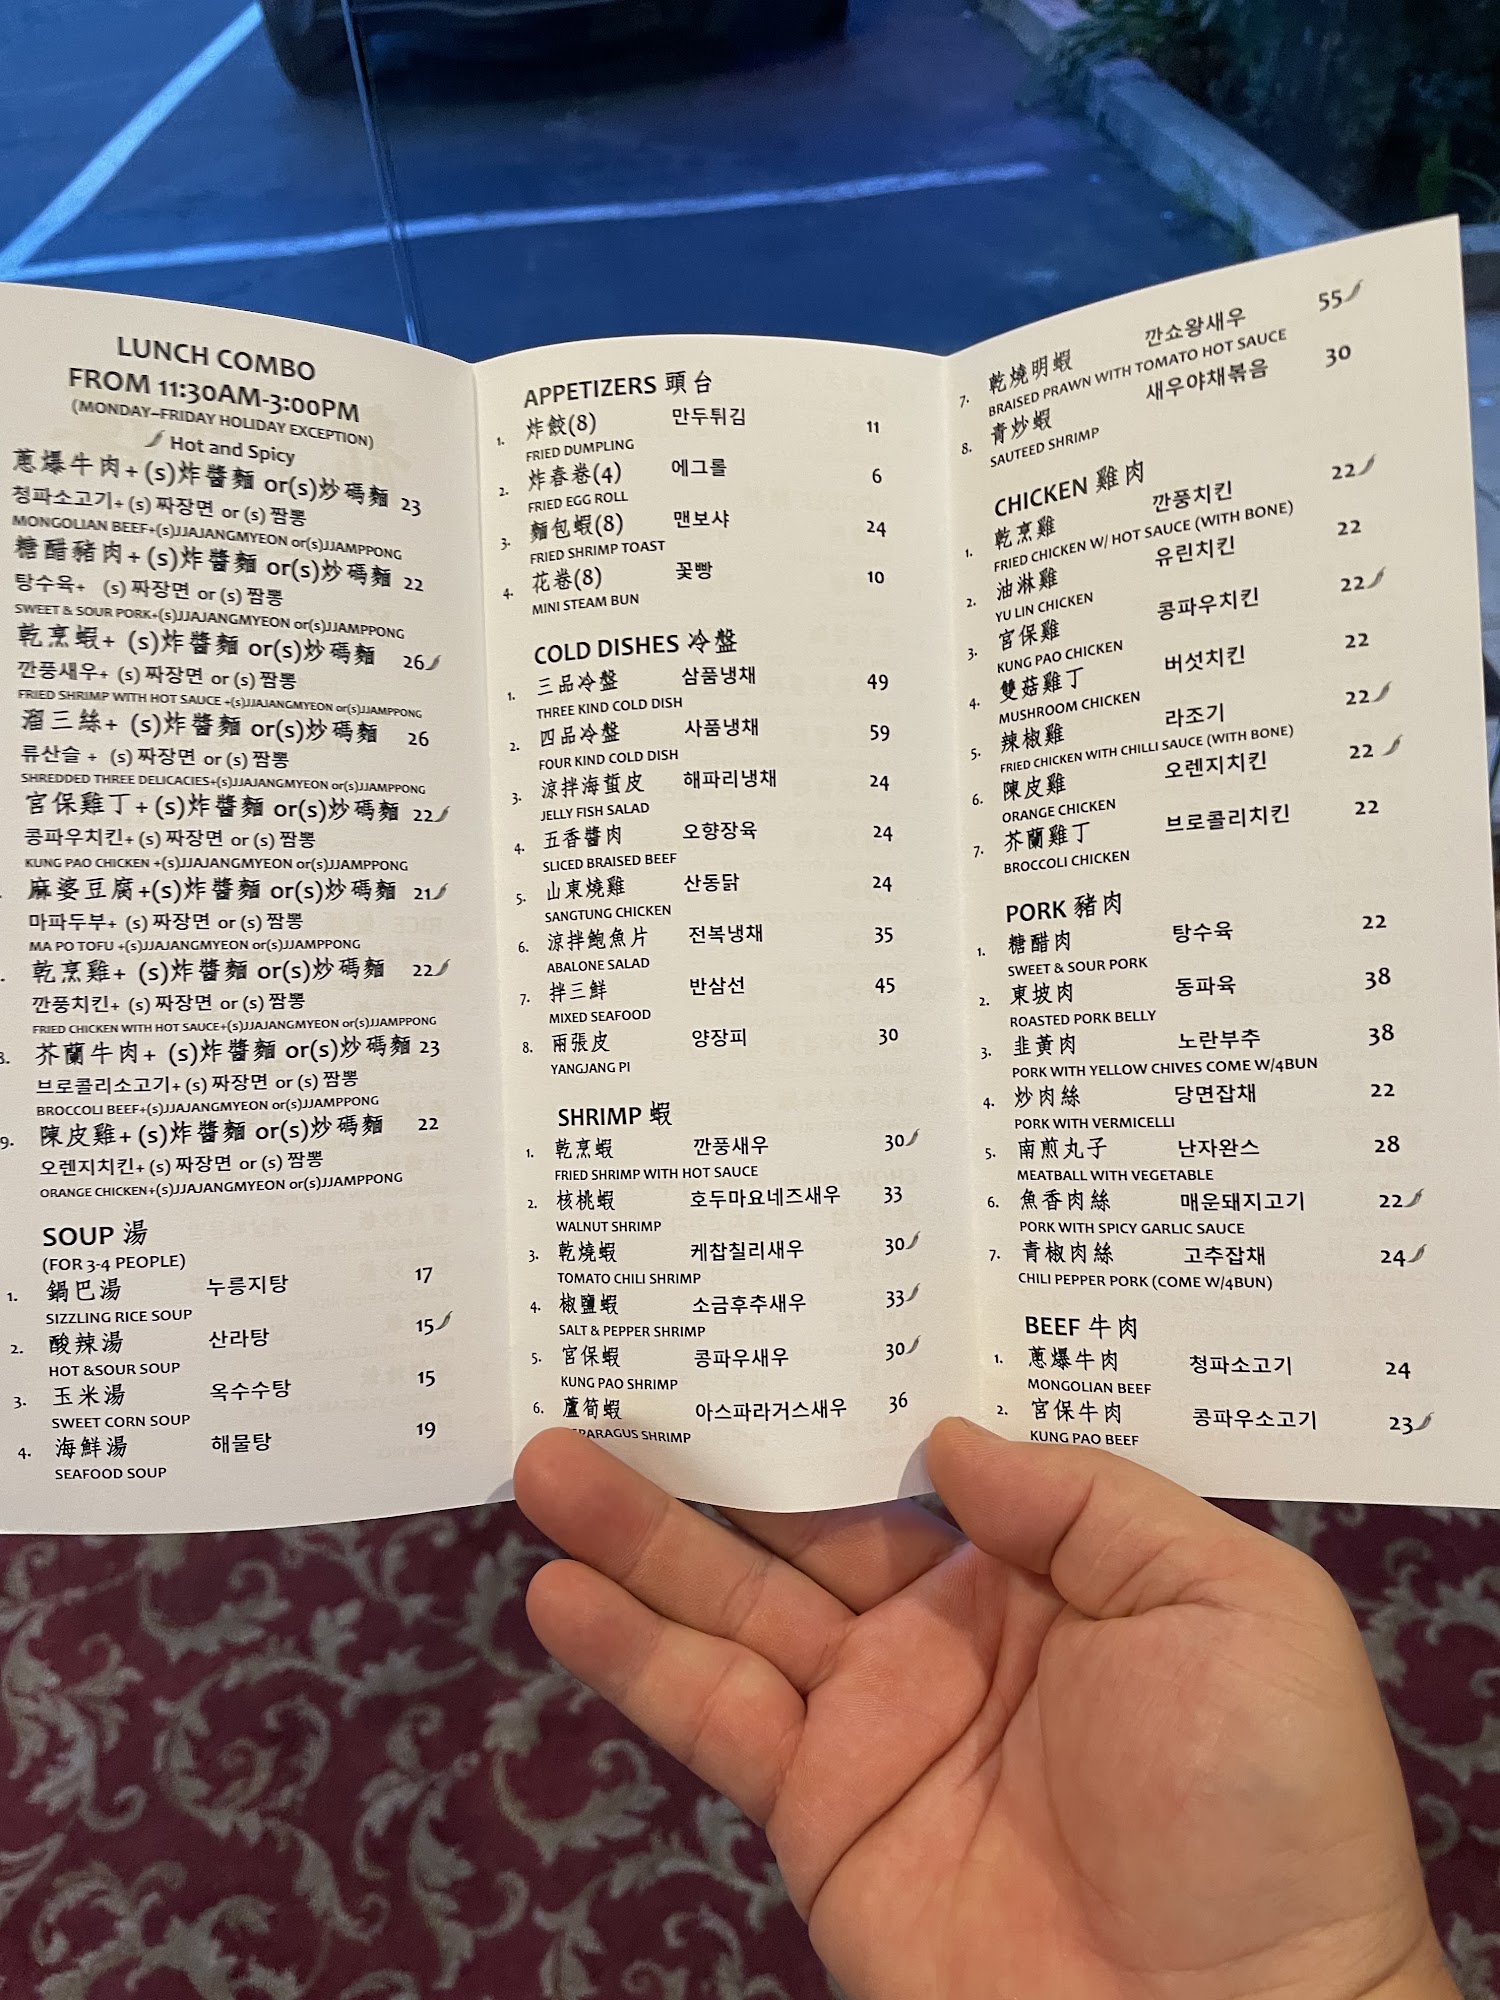 LUNCH COMBO
FROM 11:30AM-3:00PM
(MONDAY-FRIDAY HOLIDAY EXCEPTION)
Hot and Spicy
蔥爆牛肉+ (s)炸醬麵 or(s)炒碼麵 23
청파소고기+ (s) 짜장면 or (s) 짬뽕
MONGOLIAN BEEF+(s)JJAJANGMYEON or(s)JJAMPPONG
糖醋豬肉+ (s)炸醬麵 or(s)炒碼麵 22
탕수육+ (s) 짜장면 or (s) 짬뽕
SWEET & SOUR PORK+(s)JJAJANGMYEON or(s)JJAMPPONG
乾烹蝦+ (s)炸醬麵 or(s)炒碼麵 26
깐풍새우+ (s) 짜장면 or (s) 짬뽕
FRIED SHRIMP WITH HOT SAUCE +(s)JJAJANGMYEON or(s)JJAMPPONG
溜三絲+ (s)炸醬麵 or(s)炒碼麵 26
류산슬 + (s) 짜장면 or (s) 짬뽕
SHREDDED THREE DELICACIES+(s)JJAJANGMYEON or(s)JJAMPPONG
宮保雞丁+ (s)炸醬麵 or(s)炒碼麵 22
콩파우치킨+ (s) 짜장면 or (s) 짬뽕
KUNG PAO CHICKEN +(s)JJAJANGMYEON or(s)JJAMPPONG
麻婆豆腐+(s)炸醬麵 or(s)炒碼麵 21
마파두부+ (s) 짜장면 or (s) 짬뽕
MA PO TOFU +(s)JJAJANGMYEON or(s)JJAMPPONG
乾烹雞+ (s)炸醬麵 or(s)炒碼麵 22
깐풍치킨+ (s) 짜장면 or (s) 짬뽕
FRIED CHICKEN WITH HOT SAUCE+(s)JJAJANGMYEON or(s)JJAMPPONG
8. 芥蘭牛肉+ (s)炸醬麵 or(s)炒碼麵 23
브로콜리소고기+ (s) 짜장면 or (s) 짬뽕
BROCCOLI BEEF+(s)JJAJANGMYEON or(s)JJAMPPONG
9. 陳皮雞+ (s)炸醬麵 or(s)炒碼麵 22
오렌지치킨+ (s) 짜장면 or (s) 짬뽕
ORANGE CHICKEN+(s)JJAJANGMYEON or(s)JJAMPPONG
SOUP 湯
(FOR 3-4 PEOPLE)
1. 鍋巴湯 누릉지탕 17
SIZZLING RICE SOUP
2. 酸辣湯 산라탕 15
HOT &SOUR SOUP
3. 玉米湯 옥수수탕 15
SWEET CORN SOUP
4. 海鮮湯 해물탕 19
SEAFOOD SOUP
APPETIZERS 頭台
1. 炸餃(8) 만두튀김 11
FRIED DUMPLING
2. 炸春卷(4) 에그롤 6
FRIED EGG ROLL
3. 麵包蝦(8) 맨보샤 24
FRIED SHRIMP TOAST
4. 花卷(8) 꽃빵 10
MINI STEAM BUN
COLD DISHES 冷盤
1. 三品冷盤 삼품냉채 49
THREE KIND COLD DISH
2. 四品冷盤 사품냉채 59
FOUR KIND COLD DISH
3. 涼拌海蜇皮 해파리냉채 24
JELLY FISH SALAD
4. 五香醬肉 오향장육 24
SLICED BRAISED BEEF
5. 山東燒雞 산동닭 24
SANGTUNG CHICKEN
6. 涼拌鮑魚片 전복냉채 35
ABALONE SALAD
7. 拌三鮮 반삼선 45
MIXED SEAFOOD
8. 兩張皮 양장피 30
YANGJANG PI
SHRIMP 蝦
1. 乾烹蝦 깐풍새우 30
FRIED SHRIMP WITH HOT SAUCE
2. 核桃蝦 호두마요네즈새우 33
WALNUT SHRIMP
3. 乾燒蝦 케찹칠리새우 30
TOMATO CHILI SHRIMP
4. 椒鹽蝦 소금후추새우 33
SALT & PEPPER SHRIMP
5. 宮保蝦 콩파우새우 30
KUNG PAO SHRIMP
6. 蘆筍蝦 아스파라거스새우 36
SPARAGUS SHRIMP
7. 乾燒明蝦 깐쇼왕새우 55
BRAISED PRAWN WITH TOMATO HOT SAUCE
8. 青炒蝦 새우야채볶음 30
SAUTEED SHRIMP
CHICKEN 雞肉
1. 乾烹雞 깐풍치킨 22
FRIED CHICKEN W/ HOT SAUCE (WITH BONE)
2. 油淋雞 유린치킨 22
YU LIN CHICKEN
3. 宮保雞 콩파우치킨 22
KUNG PAO CHICKEN
4. 雙菇雞丁 버섯치킨 22
MUSHROOM CHICKEN
5. 辣椒雞 라조기 22
FRIED CHICKEN WITH CHILLI SAUCE (WITH BONE)
6. 陳皮雞 오렌지치킨 22
ORANGE CHICKEN
7. 芥蘭雞丁 브로콜리치킨 22
BROCCOLI CHICKEN
PORK 豬肉
1. 糖醋肉 탕수육 22
SWEET & SOUR PORK
2. 東坡肉 동파육 38
ROASTED PORK BELLY
3. 韭黃肉 노란부추 38
PORK WITH YELLOW CHIVES COME W/4BUN
4. 炒肉絲 당면잡채 22
PORK WITH VERMICELLI
5. 南煎丸子 난자완스 28
MEATBALL WITH VEGETABLE
6. 魚香肉絲 매운돼지고기 22
PORK WITH SPICY GARLIC SAUCE
7. 青椒肉絲 고추잡채 24
CHILI PEPPER PORK (COME W/4BUN)
BEEF 牛肉
1. 蔥爆牛肉 청파소고기 24
MONGOLIAN BEEF
2. 宮保牛肉 콩파우소고기 23
KUNG PAO BEEF